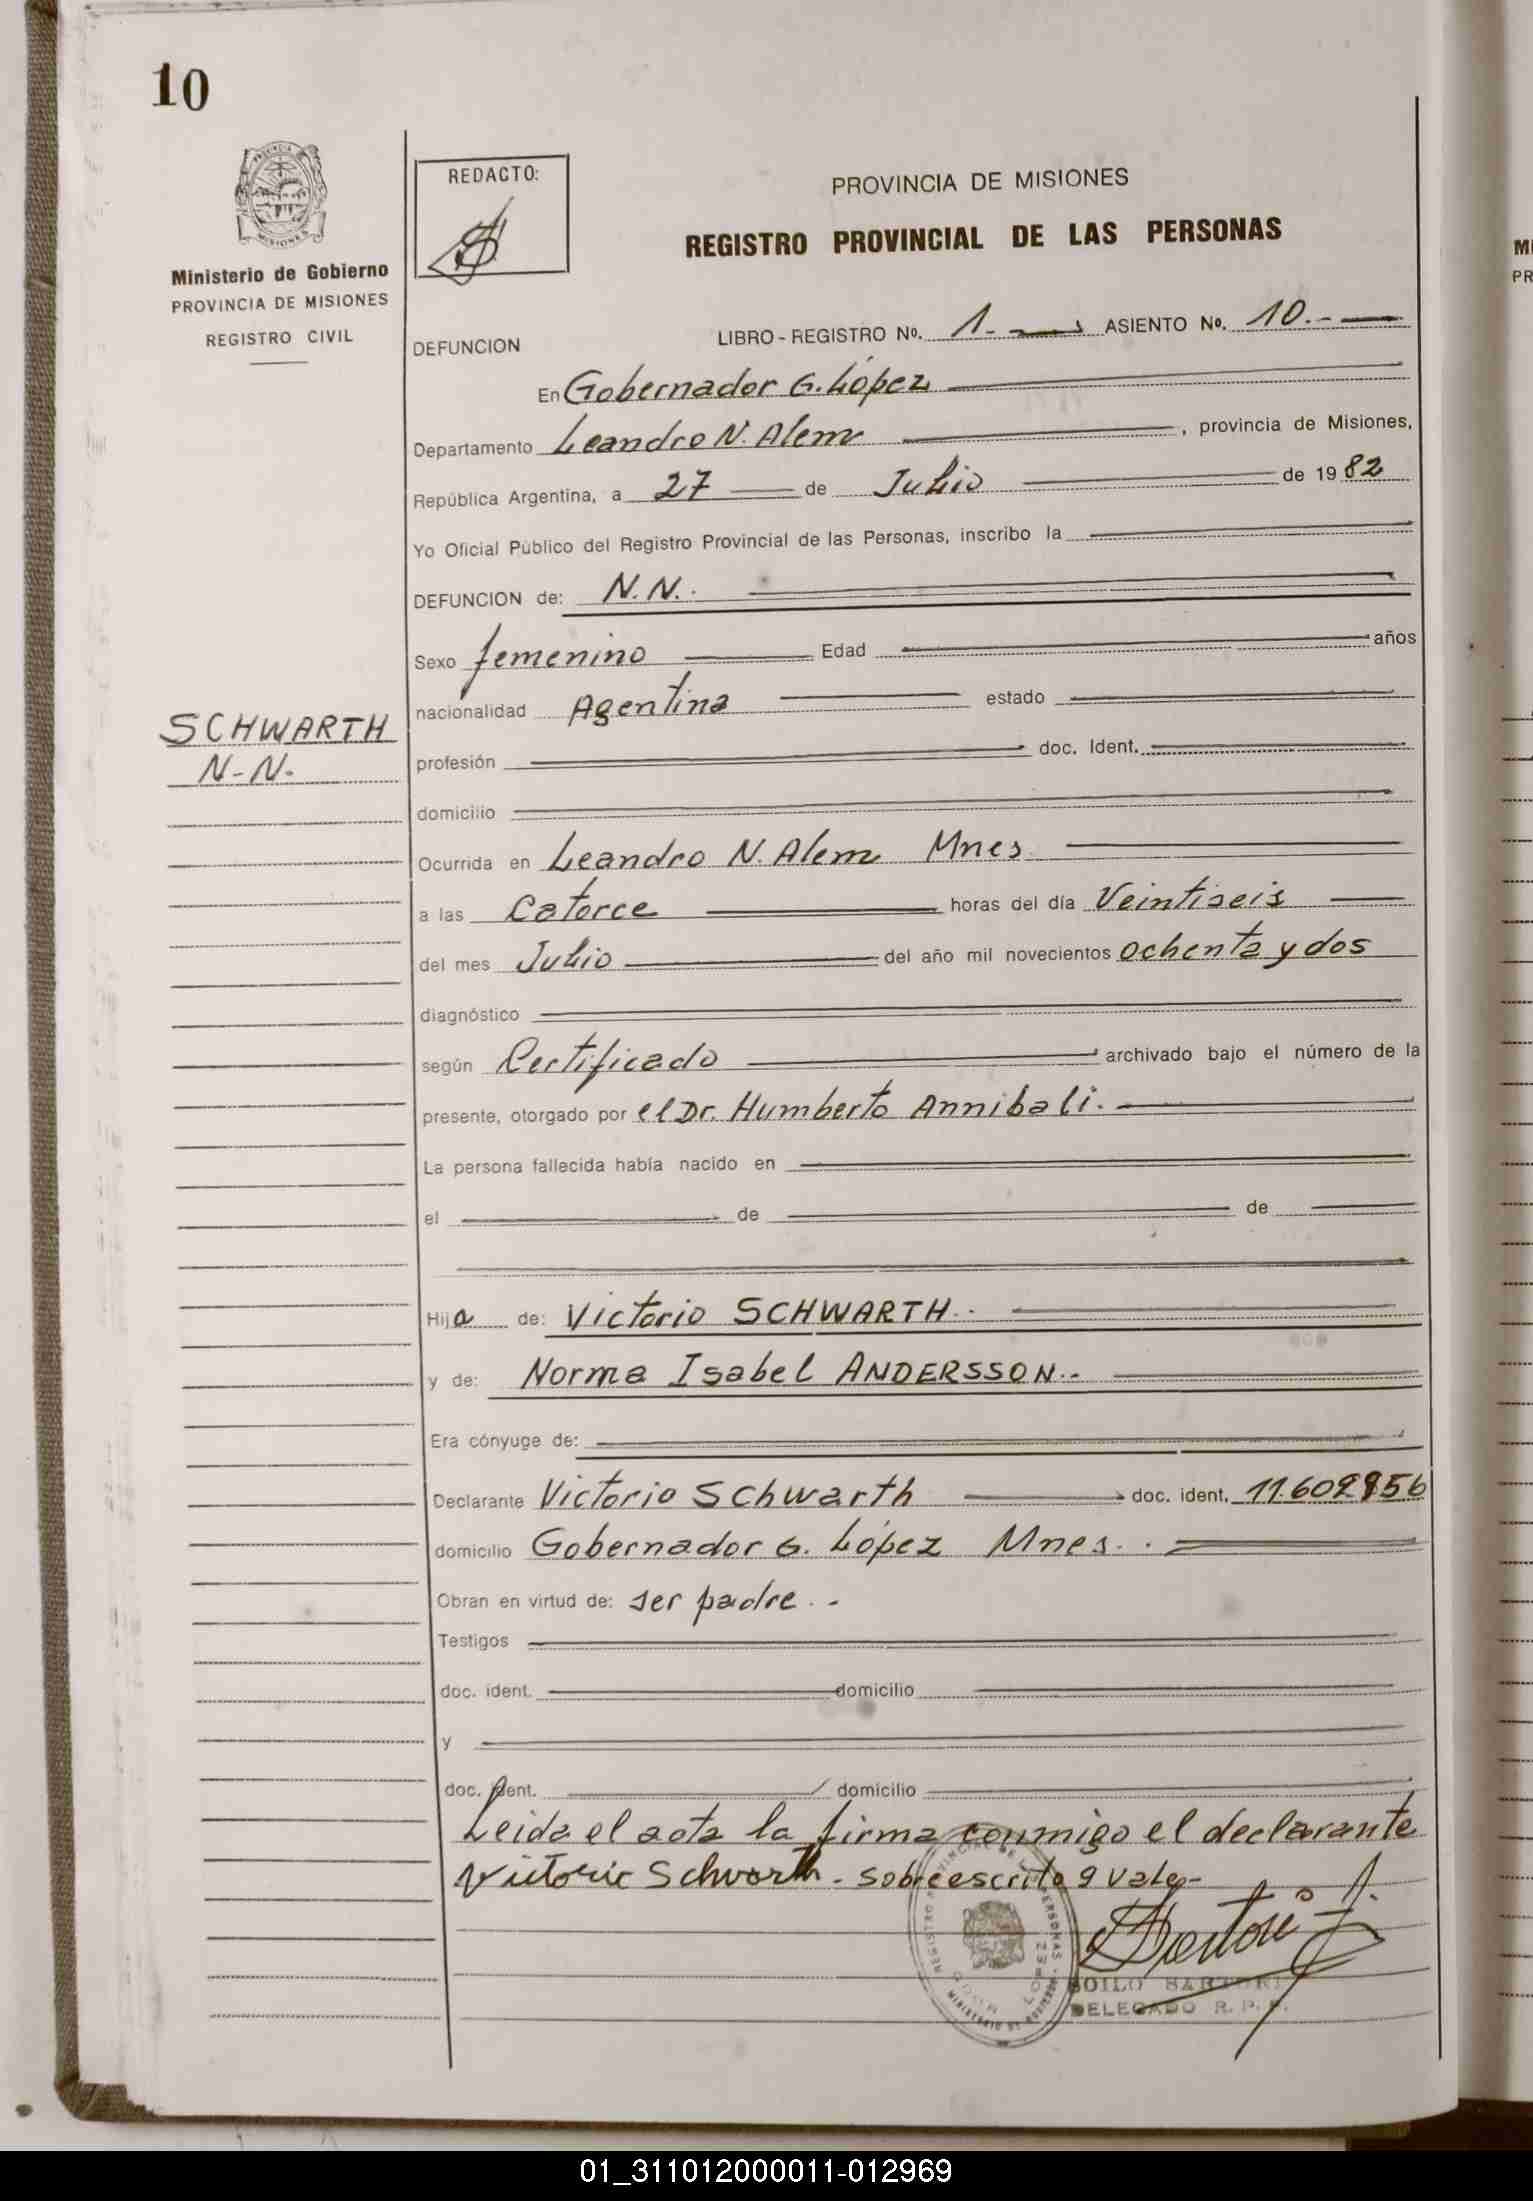 10
PROVINCIA
MISIONES
Ministerio de Gobierno
PROVINCIA DE MISIONES
REGISTRO CIVIL
REDACTO:
PROVINCIA DE MISIONES
REGISTRO PROVINCIAL DE LAS PERSONAS
DEFUNCION LIBRO - REGISTRO No. 1.- ASIENTO No. 10.-
En Gobernador G. López
Departamento Leandro N. Alem , provincia de Misiones,
República Argentina, a 27 de Julio de 19 82
Yo Oficial Público del Registro Provincial de las Personas, inscribo la
DEFUNCION de: N.N.
Sexo femenino Edad años
nacionalidad Agentina estado
SCHWARTH
N-N.
profesión doc. Ident.
domicilio
Ocurrida en Leandro N. Alem Mnes
a las Catorce horas del día Veintiseis
del mes Julio del año mil novecientos ochenta y dos
diagnóstico
según Certificado archivado bajo el número de la
presente, otorgado por el Dr. Humberto Annibali.
La persona fallecida había nacido en
el de de
Hija de: Victorio SCHWARTH.
y de: Norma Isabel ANDERSSON.-
Era cónyuge de:
Declarante Victorio Schwarth doc. ident. 11.609856
domicilio Gobernador G. López Mnes.
Obran en virtud de: ser padre.-
Testigos
doc. ident. domicilio
y
doc. ident. domicilio
Leida el acta la firma conmigo el declarante
Victorio Schwarth - sobreescrito 9 vale-
SOILO SARTORI
DELEGADO R. P. P.
01_311012000011-012969